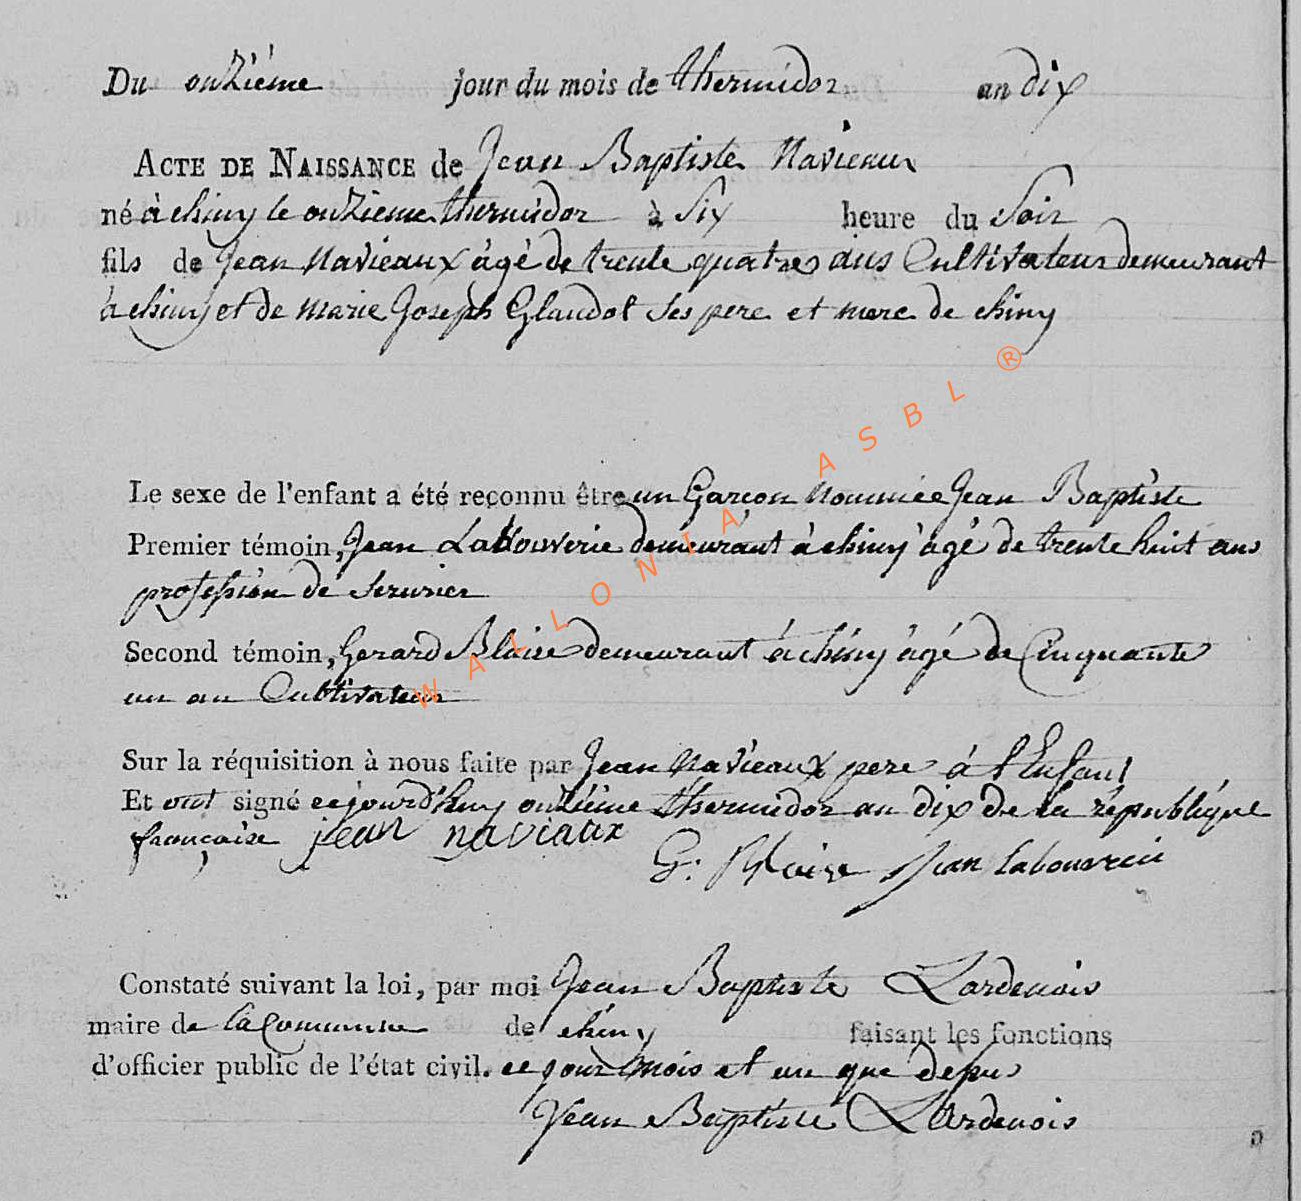 Du onzième jour du mois de thermidor an dix
ACTE DE NAISSANCE de Jean Baptiste Navieaux
né à chiny le onzieme thermidor à six heure du soir
fils de Jean Navieaux âgé de trente quatres ans Cultivateur demeurant
à chiny et de marie Joseph Glaudot ses pere et mere de chiny
Le sexe de l'enfant a été reconnu être un Garcon nommée Jean Baptiste
Premier témoin, Jean Labouverie demeurant à chiny âgé de trente huit ans
profession de serurier
Second témoin, Gerard Blaise demeurant à chiny âgé de Cinquante
un an Cultivateur
Sur la réquisition à nous faite par Jean Navieaux pere à l'Enfant
Et ont signé cejourd'huy onzième thermidor an dix de la république
française jean naviaux
G: Blaise Jean labouvreie
Constaté suivant la loi, par moi Jean Baptiste Lardenois
maire de la Commune de chiny faisant les fonctions
d'officier public de l'état civil. ce jour mois et an que
Jean Baptiste Lardenois
WALLONIA ASBL ®